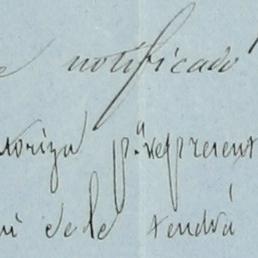 e notificado
toriza p.a represent
de tendrá